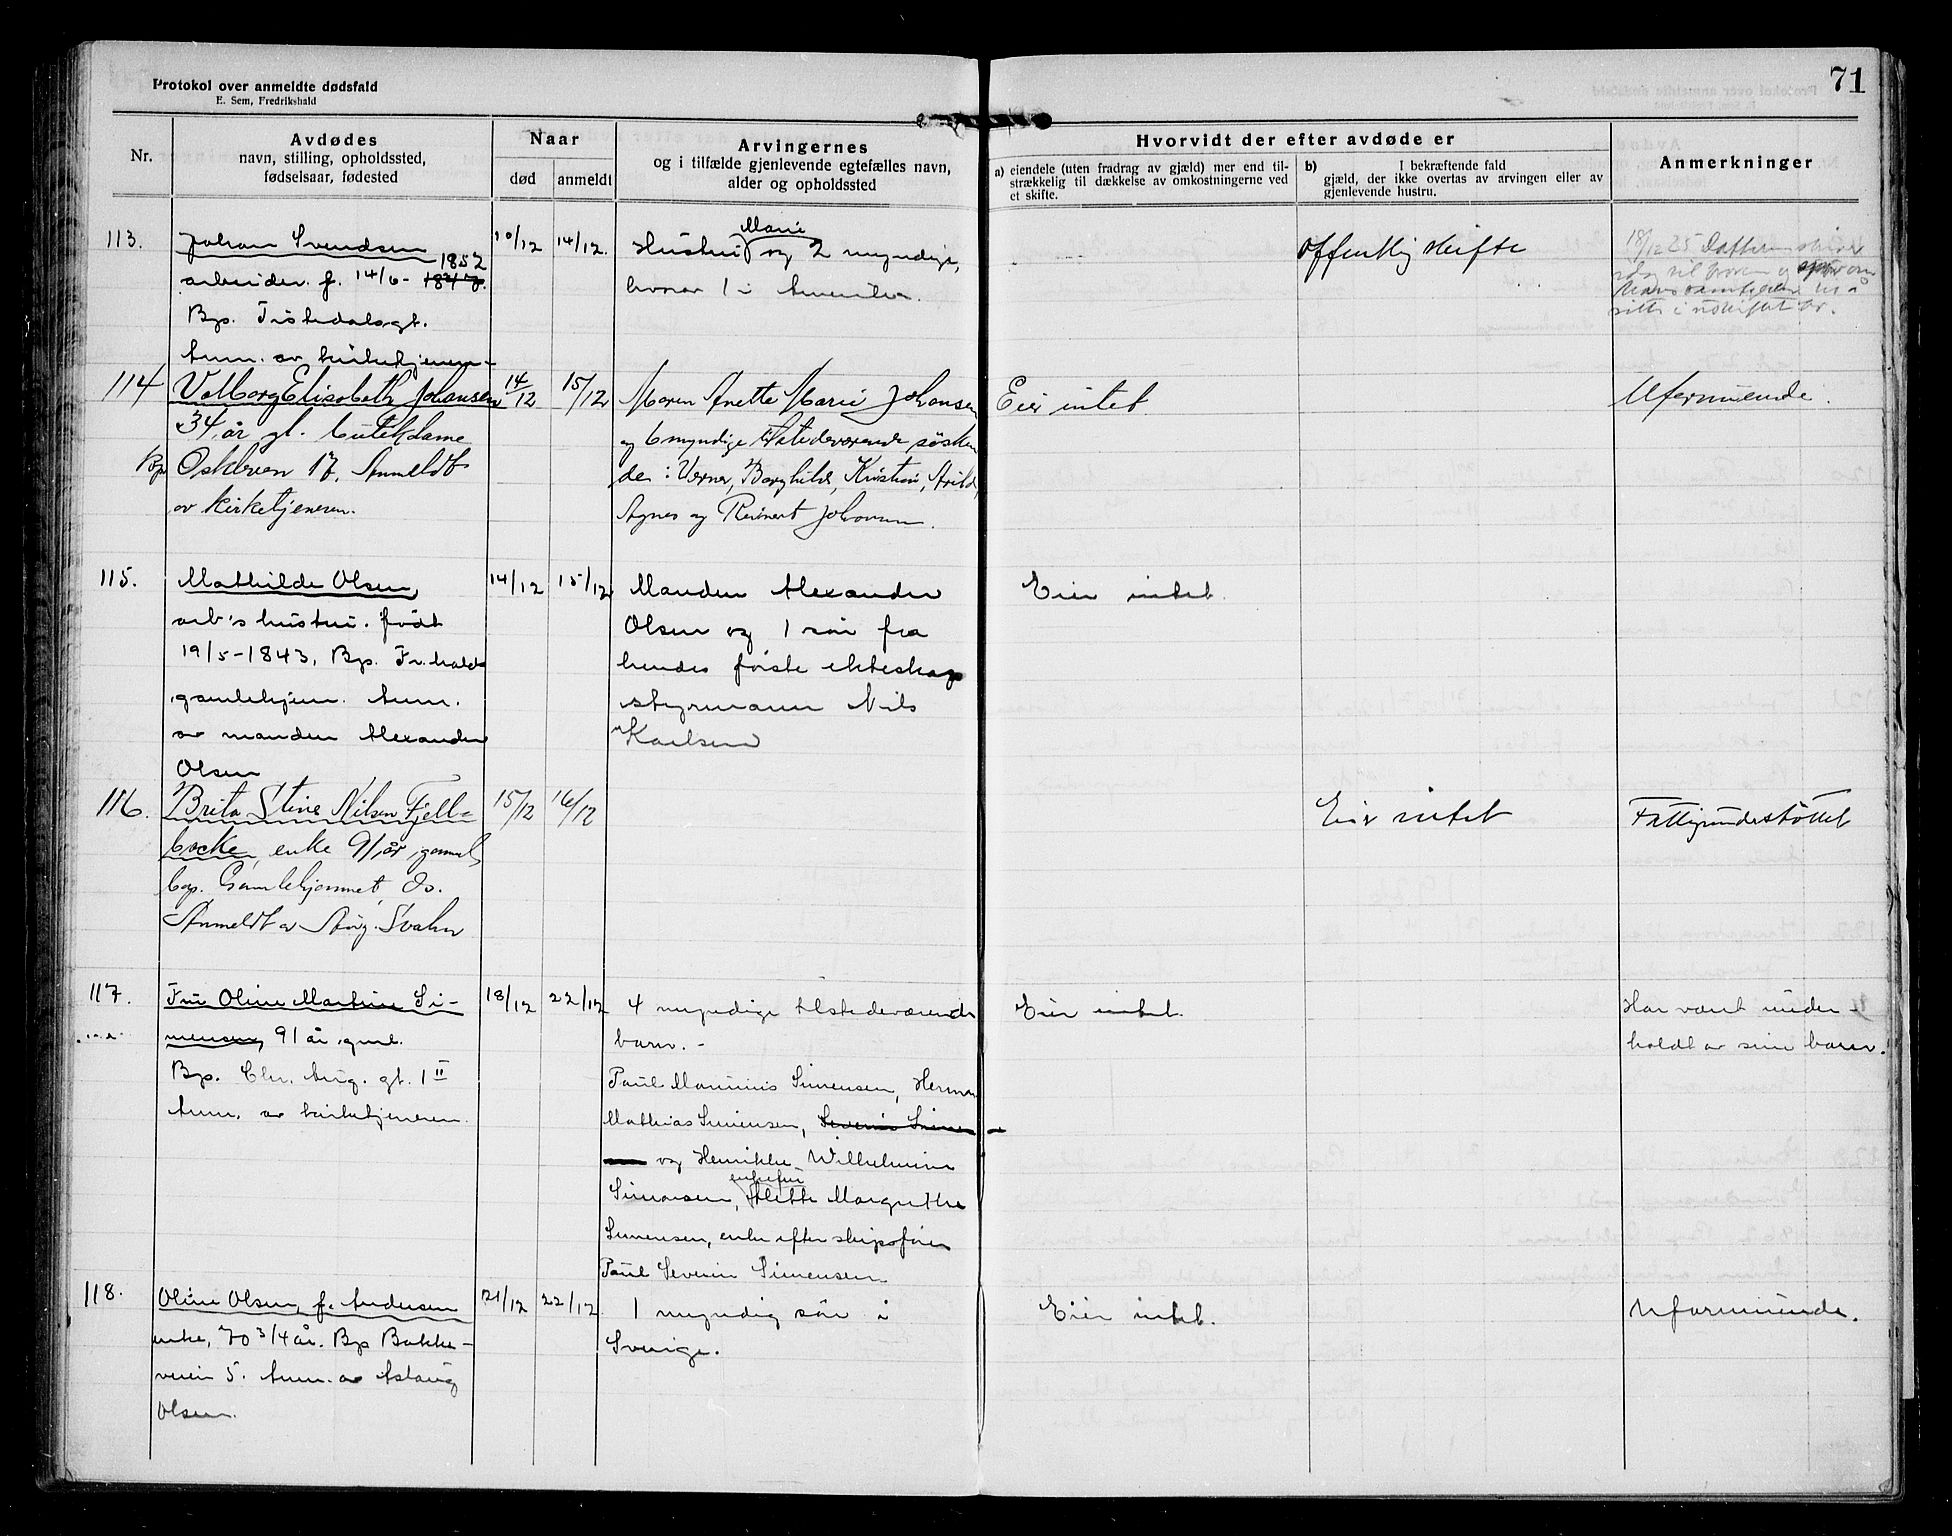 71
Protokol over anmeldte dødsfald
E. Sem, Fredrikshald
Nr.
Avdødes
navn, stilling, opholdssted,
fødselsaar, fødested
Naar
død
anmeldt
Arvingernes
og i tilfælde gjenlevende egtefælles navn,
alder og opholdssted
Hvorvidt der efter avdøde er
a) eiendele (uten fradrag av gjæld) mer end til-
strækkelig til dækkelse av omkostningerne ved
et skifte.
b) I bekræftende fald
gjæld, der ikke overtas av arvingen eller av
gjenlevende hustru.
Anmerkninger
113.
Johan Svendsen
1852
arbeider f. 14/6- 1847.
Bp. Tistedalsgt.
Anm. av kirketjeneren
10/12
14/12.
Marie
Hustru og 2 myndige,
hvorav 1 i Amerika.
Offentlig skifte
18/12 25 Datteren
114
Valborg Elisabeth Johansen
34 år gl. butikdame
Bp Oskleven 17. Anmeldt
av kirketjeneren.
14/12
15/12
Maren Anette Marie Johansen
og 6 myndige tilstedeværende søsken-
de: Verner, Borghild, Kristian, Arild,
Agnes og Reinert Johansen.
Eier intet
Uformuende.
115.
Mathilde Olsen,
arb's hustru. født
19/5-1843, Bp. Fr.halds
gamlehjem. Anm.
av manden Alexander
Olsen
14/12
15/12
Manden Alexander
Olsen og 1 søn fra
hendes første ekteskap
styrmann Nils
Karlsen
Eier intet.
116.
Brita Stine Nilsen Fjell-
backe, enke 91 år gammel,
bop. Gamlehjemmet, Os.
Anmeldt av Aug. Svahn
15/12
16/12
Eier intet
Fattigunderstøttet
117.
Fru Oline Martine Si-
mensen, 91 år gml.
Bp. Chr. Aug. gt. 1 II
Anm. av kirketjeneren.
18/12
22/12
4 myndige tilstedeværende
barn. -
Paul Manius Simensen, Herman
Mathias Simensen, Severin Simen-
og Henrikke Wilhelmine
Simensen, Alette Margrethe
Simensen, enke efter skipsfører
Paul Severin Simensen
Eier intet.
Har vært under-
holdt av sine barn.
118.
Oline Olsen, f. Andersen
enke, 70 3/4 år. Bp Bakke-
veien 5. Anm. av Aslaug
Olsen.
21/12
22/12.
1 myndig søn i
Sverige.
Eier intet.
Uformuende.